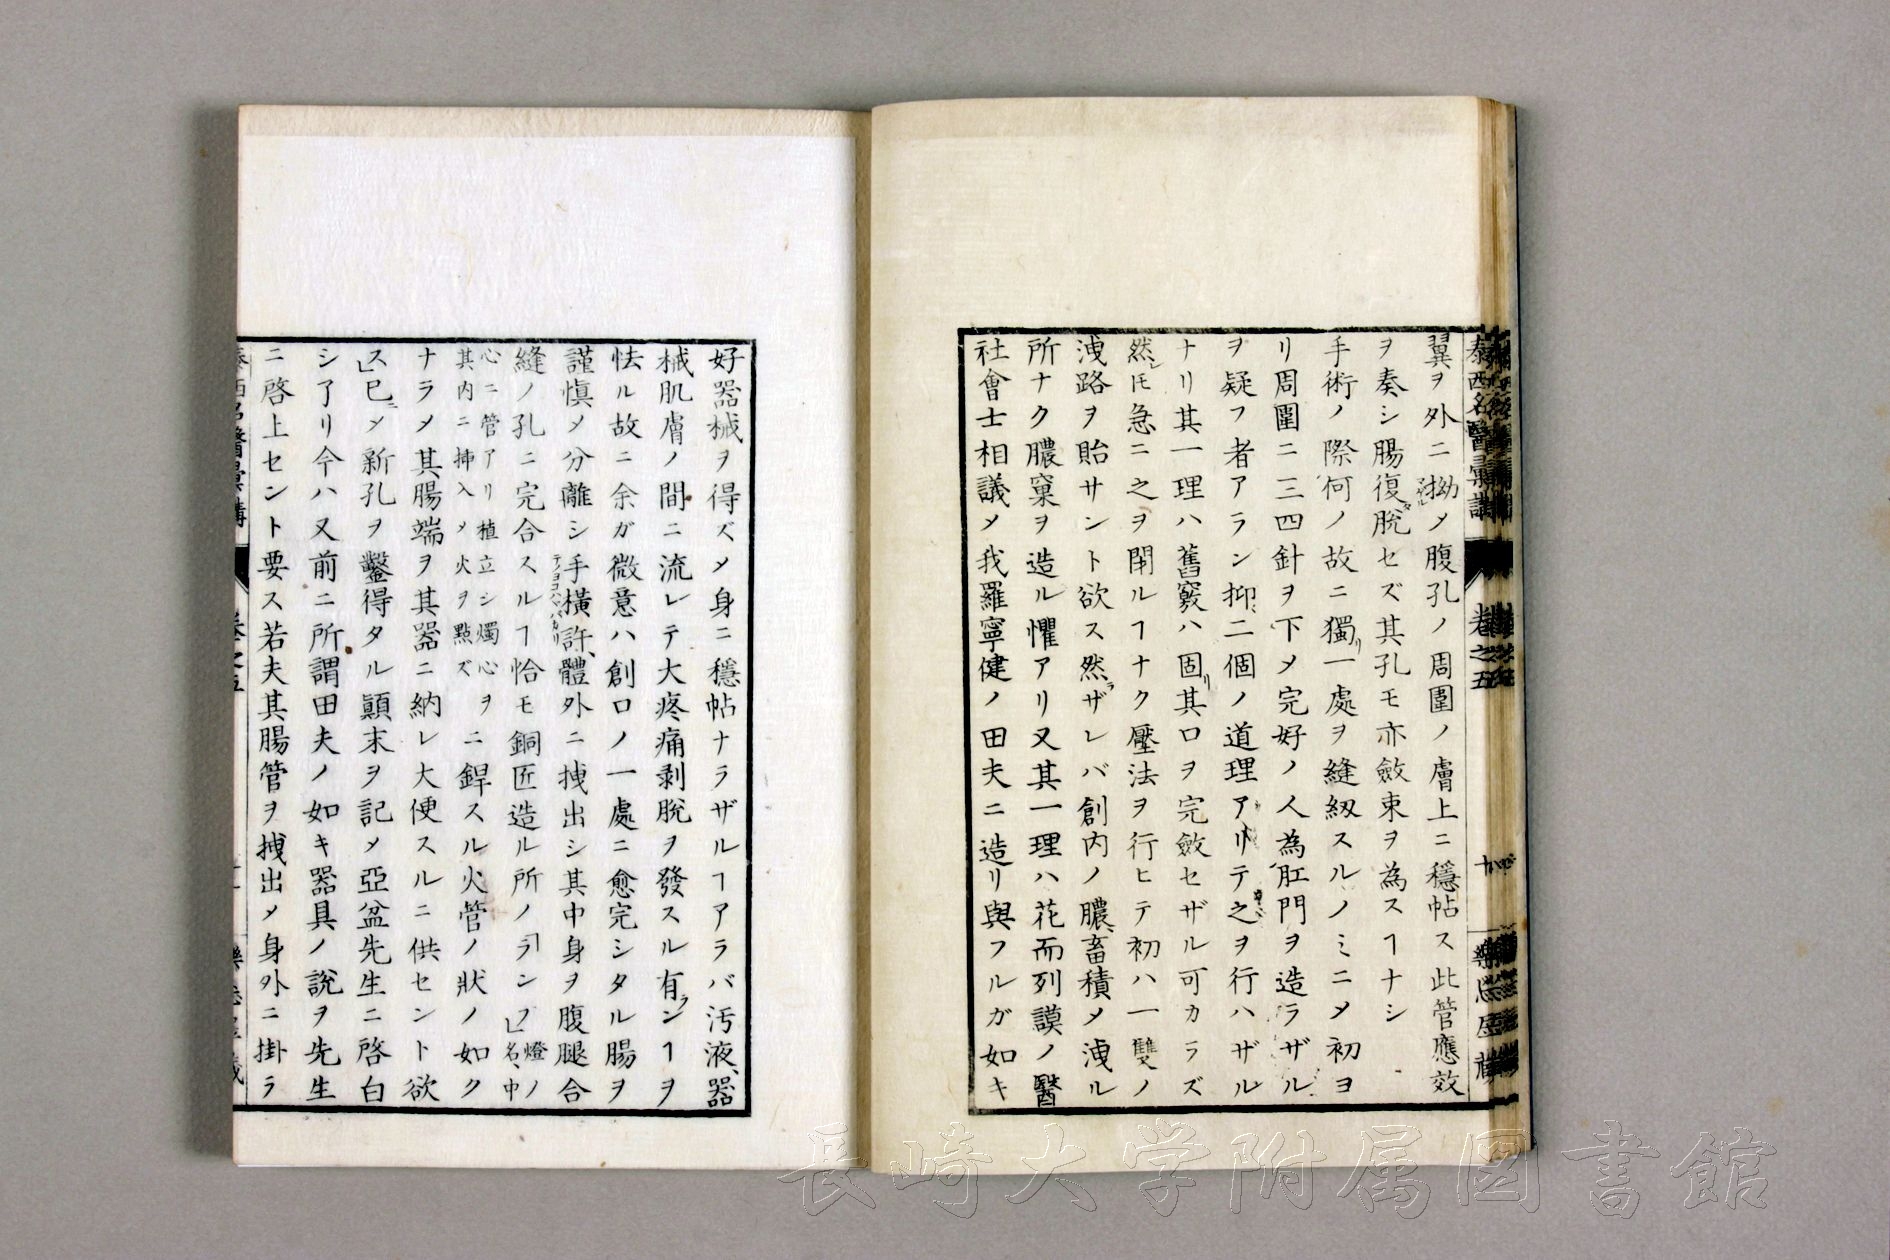 泰西名醫彙講
卷之五
翼ヲ外ニ拗メ腹孔ノ周圍ノ膚上ニ穩帖ス此管應效
ヲ奏シ腸復脫セズ其孔モ亦斂束ヲ為スヿナシ
手術ノ際何ノ故ニ獨リ一處ヲ縫紉スルノミニメ初ヨ
リ周圍ニ三四針ヲ下メ完好ノ人為肛門ヲ造ラザル
ヲ疑フ者アラン抑二個ノ道理アリテ之ヲ行ハザル
ナリ其一理ハ舊竅ハ固リ其口ヲ完斂セザル可カラズ
然レ𪜈急ニ之ヲ閉ルヿナク壓法ヲ行ヒテ初ハ一雙ノ
洩路ヲ貽サント欲ス然ラザレバ創内ノ膿畜積メ洩ル
所ナク膿窠ヲ造ル懼アリ又其一理ハ花而列謨ノ醫
社會士相議メ我羅寧健ノ田夫ニ造リ與フルガ如キ
好器械ヲ得ズメ身ニ穩帖ナラザルヿアラバ汚液器
械肌膚ノ間ニ流レテ大疼痛剥脫ヲ發スル有ランヿヲ
怯ル故ニ余ガ微意ハ創口ノ一處ニ愈完シタル腸ヲ
謹愼メ分離シ手橫許體外ニ拽出シ其中身ヲ腹腿合
縫ノ孔ニ完合スルヿ恰モ銅匠造ル所ノ「ランプ」燈ノ名中
心ニ管アリ植立シ燭心ヲ
其内ニ挿入メ火ヲ點ズ
ニ銲スル火管ノ狀ノ如ク
ナラメ其腸端ヲ其器ニ納レ大便スルニ供セント欲
ス已ニメ新孔ヲ鑿得タル顚末ヲ記メ亞盆先生ニ啓白
シ了リ今ハ又前ニ所謂田夫ノ如キ器具ノ說ヲ先生
ニ啓上セント要ス若夫其腸管ヲ拽出メ身外ニ掛ラ
泰西名醫彙講
卷之五
長崎大学附属図書館